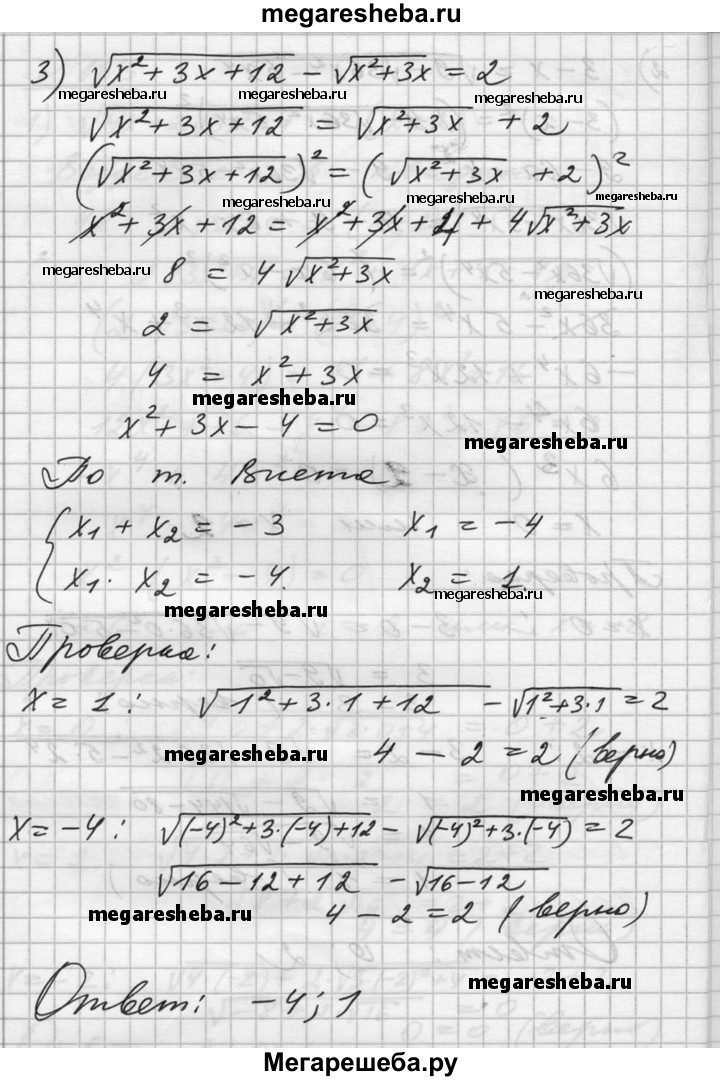 megaresheba.ru
3) √(x² + 3x + 12) − √(x² + 3x) = 2
megaresheba.ru megaresheba.ru megaresheba.ru
√(x² + 3x + 12) = √(x² + 3x) + 2
(√(x² + 3x + 12))² = (√(x² + 3x) + 2)²
megaresheba.ru megaresheba.ru
x² + 3x + 12 = x² + 3x + 4 + 4√(x² + 3x)
megaresheba.ru 8 = 4√(x² + 3x)
megaresheba.ru
2 = √(x² + 3x)
4 = x² + 3x
megaresheba.ru
x² + 3x − 4 = 0
megaresheba.ru
По т. Виета
{ x₁ + x₂ = −3 x₁ = −4
x₁ · x₂ = −4. x₂ = 1.
megaresheba.ru megaresheba.ru
Проверка:
x = 1 : √(1² + 3·1 + 12) − √(1² + 3·1) = 2
megaresheba.ru 4 − 2 = 2 (верно)
megaresheba.ru
x = −4 : √((−4)² + 3·(−4) + 12) − √((−4)² + 3·(−4)) = 2
√(16 − 12 + 12) − √(16 − 12)
megaresheba.ru 4 − 2 = 2 (верно)
megaresheba.ru
Ответ: −4; 1
Мегарешеба.ру